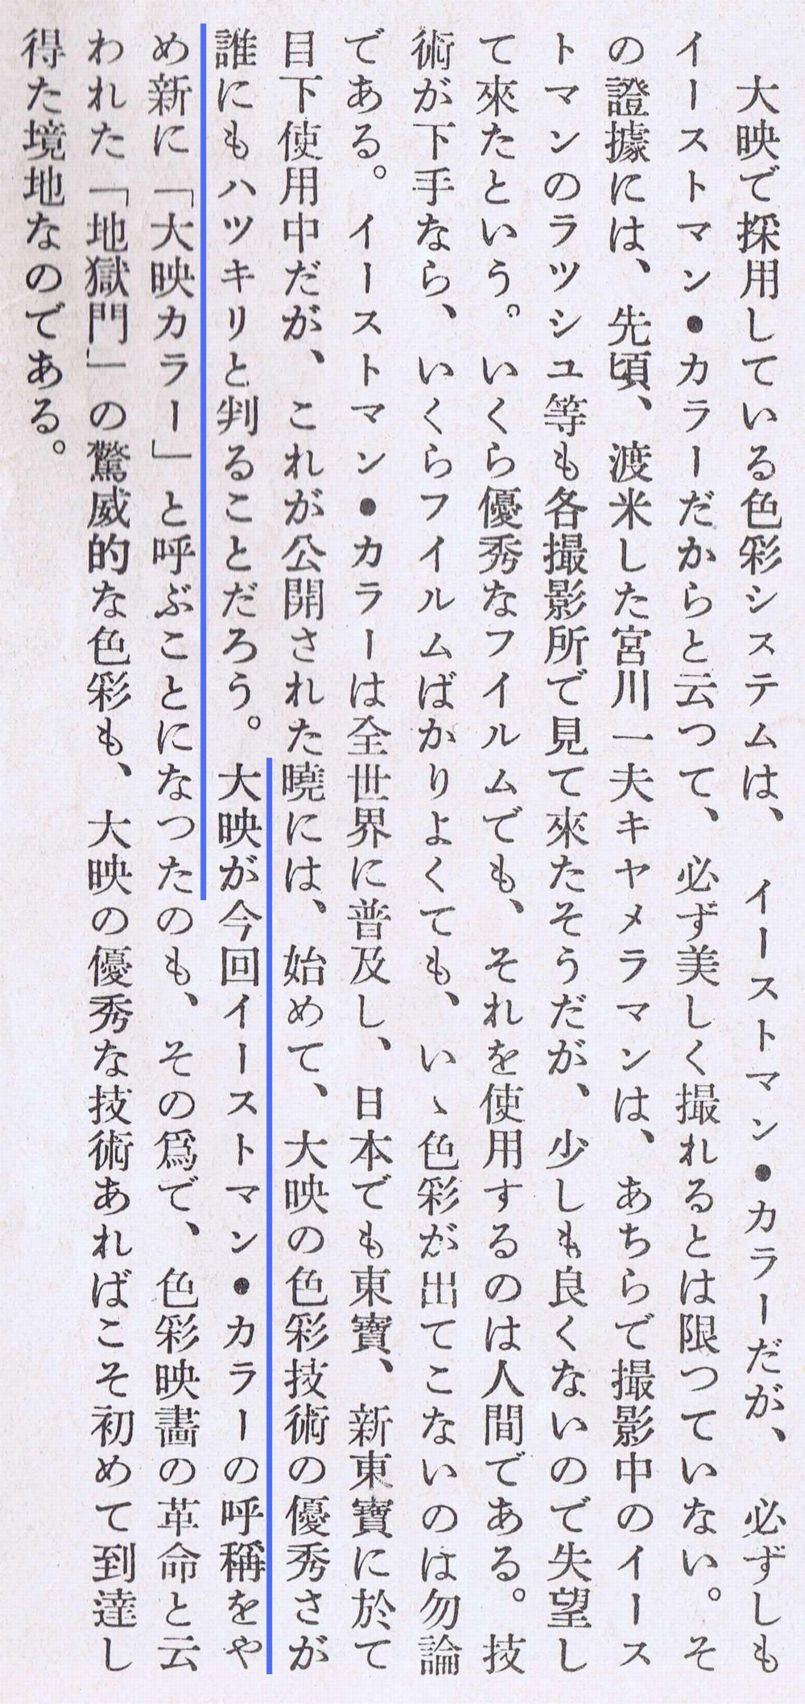 大映で採用している色彩システムは、イーストマン●カラーだが、必ずしも
イーストマン●カラーだからと云つて、必ず美しく撮れるとは限つていない。そ
の證據には、先頃、渡米した宮川一夫キヤメラマンは、あちらで撮影中のイース
トマンのラツシユ等も各撮影所で見て來たそうだが、少しも良くないので失望し
て來たという。いくら優秀なフイルムでも、それを使用するのは人間である。技
術が下手なら、いくらフイルムばかりよくても、いゝ色彩が出てこないのは勿論
である。イーストマン●カラーは全世界に普及し、日本でも東寶、新東寶に於て
目下使用中だが、これが公開された曉には、始めて、大映の色彩技術の優秀さが
誰にもハツキリと判ることだろう。大映が今回イーストマン●カラーの呼稱をや
め新に「大映カラー」と呼ぶことになつたのも、その爲で、色彩映畵の革命と云
われた「地獄門」の驚威的な色彩も、大映の優秀な技術あればこそ初めて到達し
得た境地なのである。